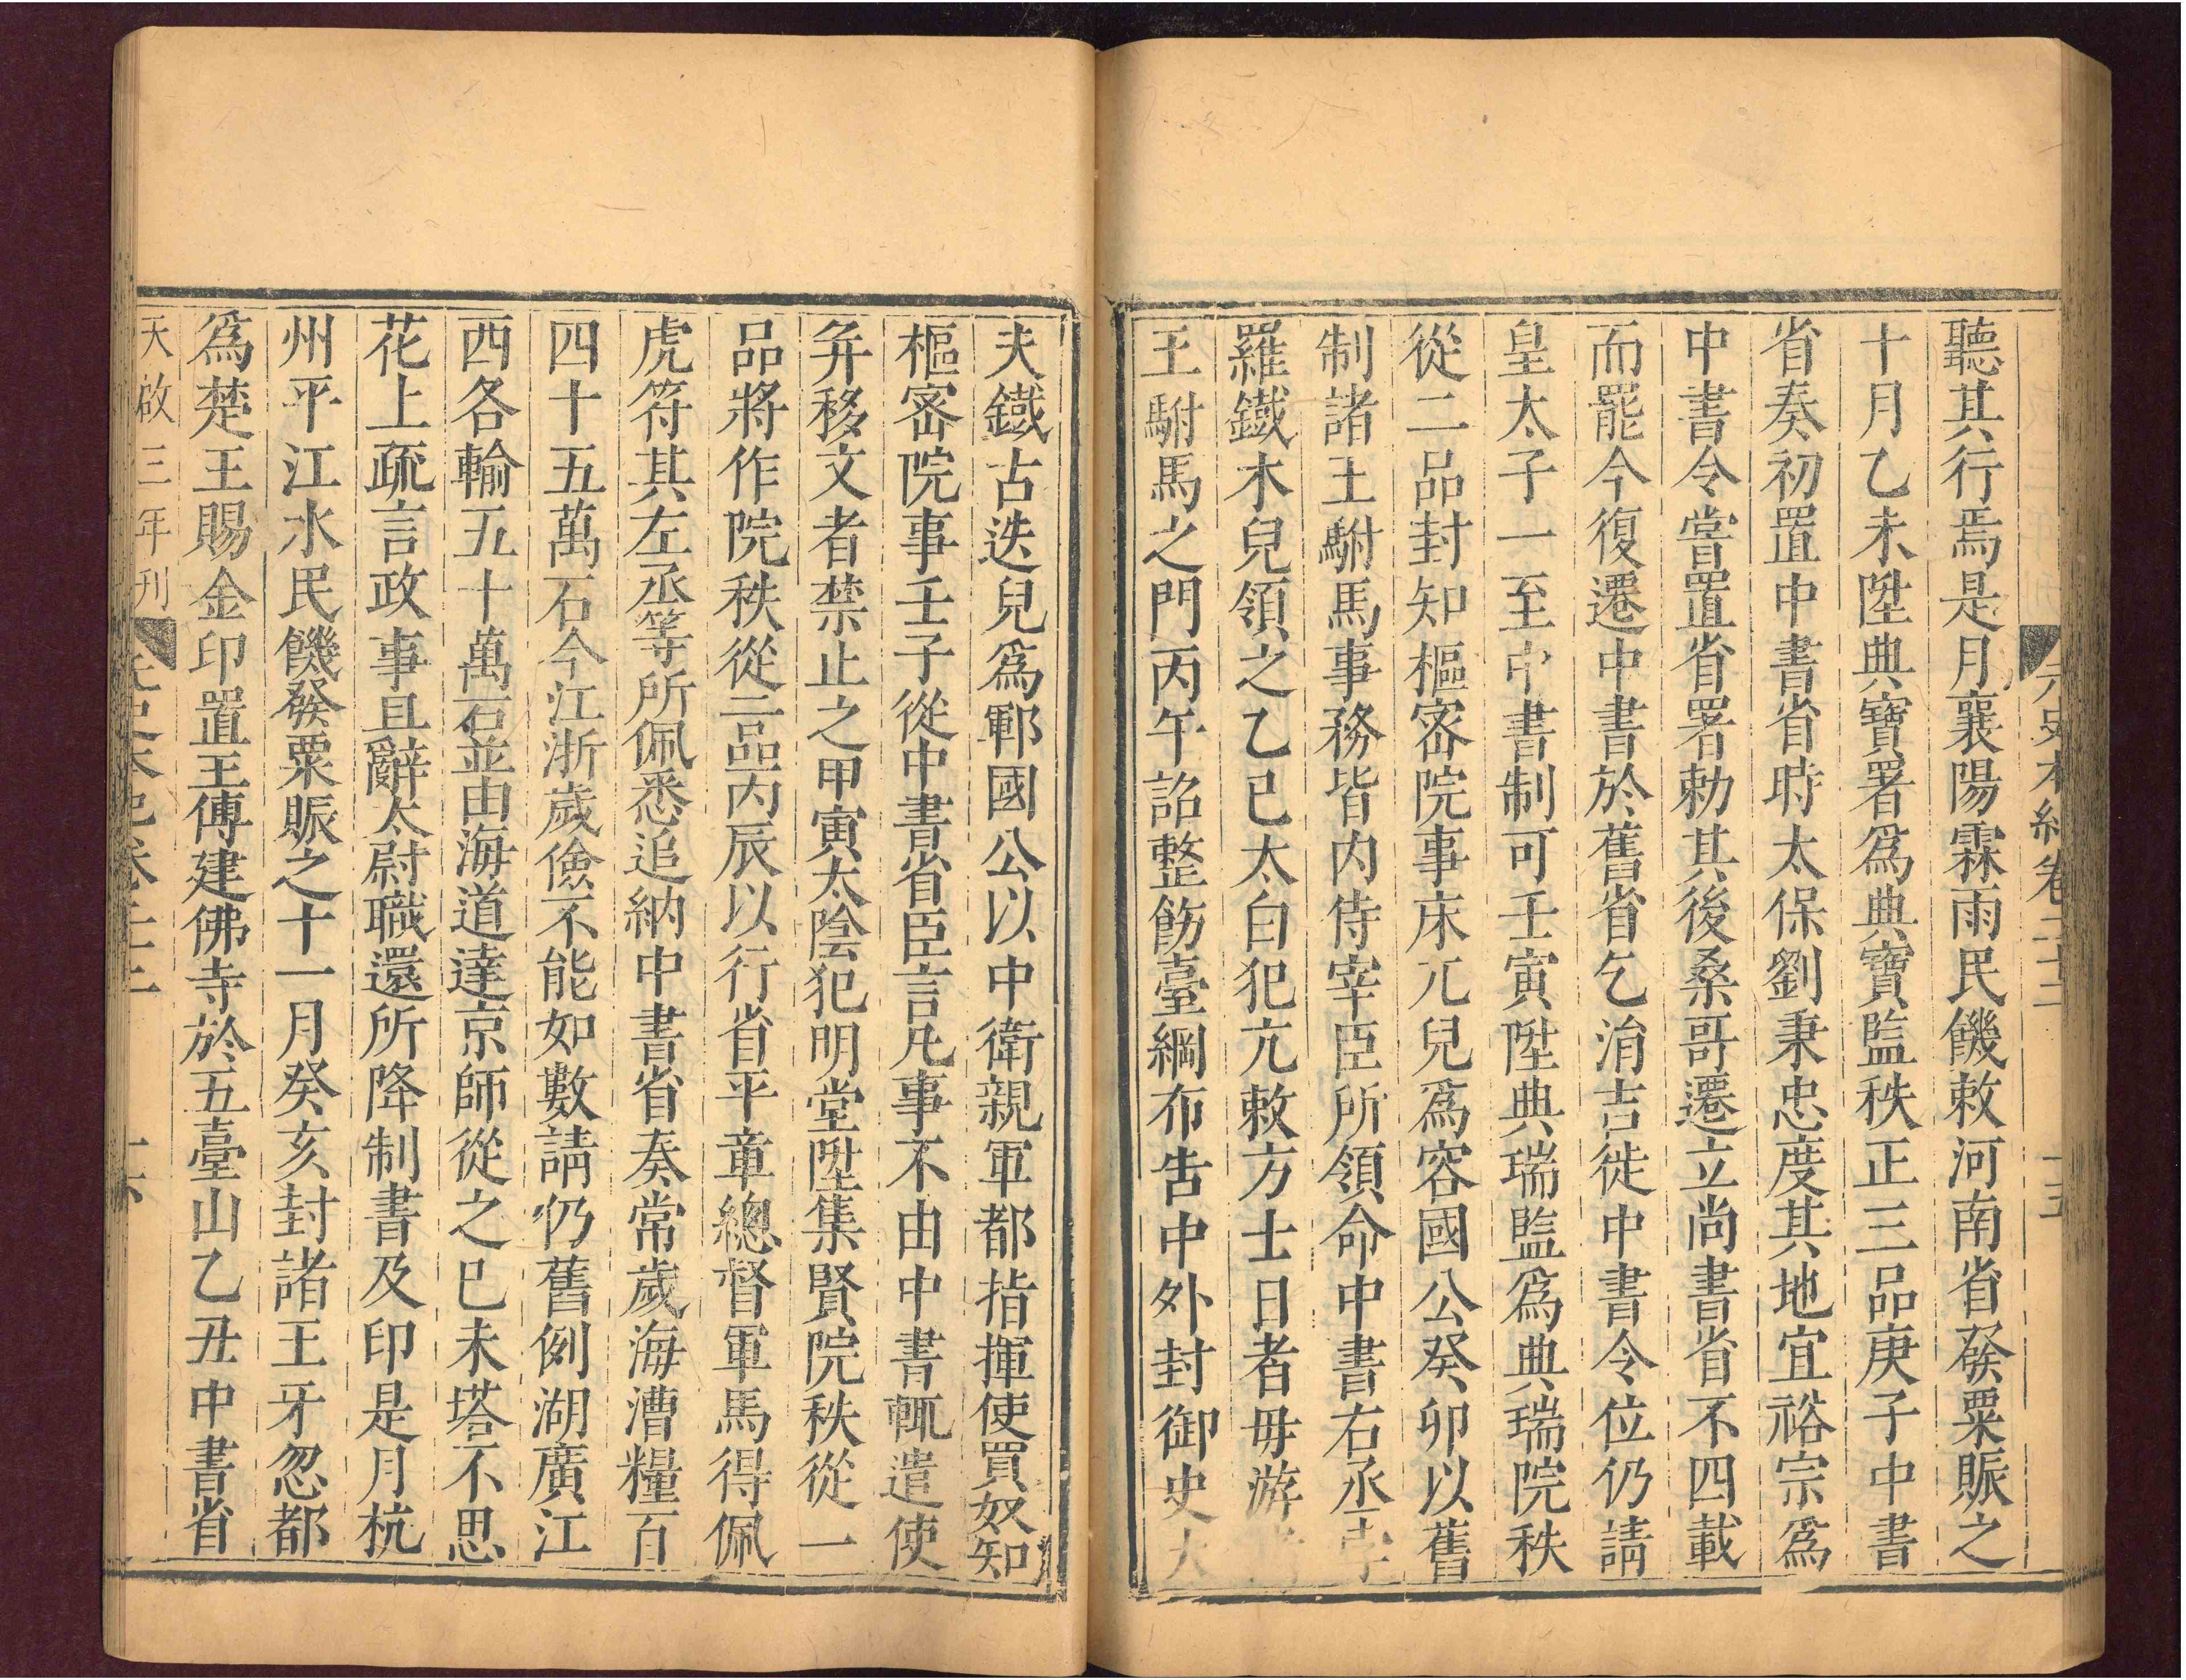 元史本紀卷二十二
十五
聽其行焉是月襄陽霖雨民饑敕河南省發粟賑之
十月乙未陞典寶署爲典寶監秩正三品庚子中書
省奏初置中書省時太保劉秉忠度其地宜裕宗爲
中書令嘗置省署勅其後桑哥遷立尚書省不四載
而罷今復遷中書於舊省乞涓吉徙中書令位仍請
皇太子一至中書制可壬寅陞典瑞監爲典瑞院秩
從二品封知樞密院事床兀兒爲容國公癸卯以舊
制諸王駙馬事務皆內侍宰臣所領命中書右丞孛
羅鐵木兒領之乙巳太白犯亢敕方士日者毋游
王駙馬之門丙午詔整飭臺綱布告中外封御史大
夫鐵古迭兒爲鄆國公以中衛親軍都指揮使買奴知
樞密院事壬子從中書省臣言凡事不由中書輒遣使
并移文者禁止之甲寅太陰犯明堂陞集賢院秩從一
品將作院秩從二品丙辰以行省平章總督軍馬得佩
虎符其左丞等所佩悉追納中書省奏常歲海漕糧百
四十五萬石今江浙歲儉不能如數請仍舊例湖廣江
西各輸五十萬石並由海道達京師從之巳未塔不思
花上疏言政事且辭太尉職還所降制書及印是月杭
州平江水民饑發粟賑之十一月癸亥封諸王牙忽都
爲楚王賜金印置王傅建佛寺於五臺山乙丑中書省
天啟三年刊
元史本紀卷二十二
十六